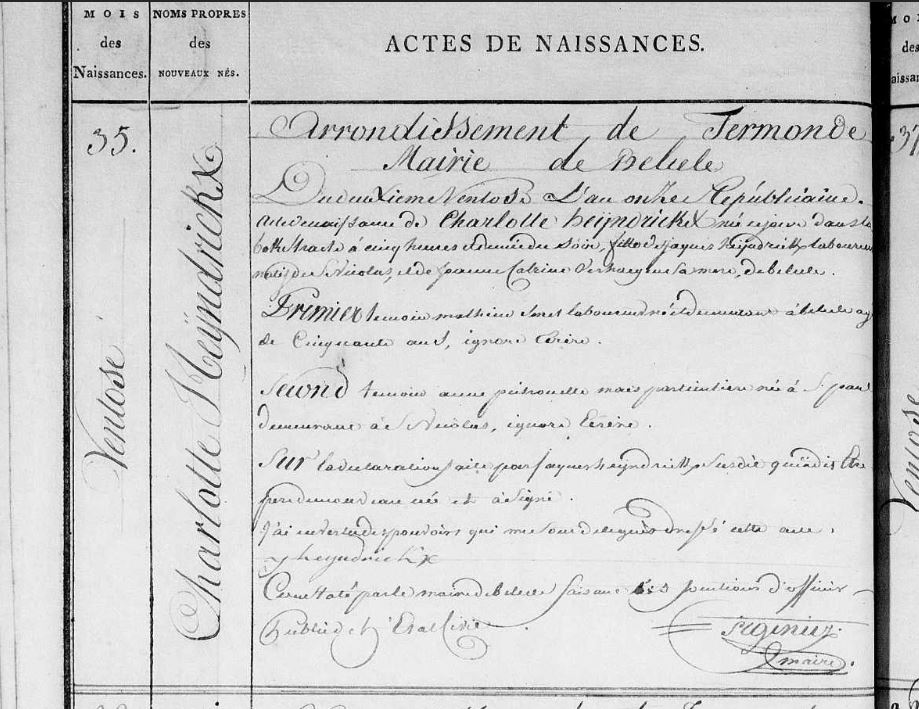 MOIS
des
Naissances.
NOMS PROPRES
des
NOUVEAUX NÉS.
ACTES DE NAISSANCES.
35.
Ventose
Charlotte Heÿndrickx
Arrondissement de Termonde
Mairie de Belcele
Du deuxieme Ventose L'an onze Républicaine.
acte de naissance de Charlotte heijndrickx née ce jour dans la
à cinq heures et demie du soir, fille de jaques heijndrickx laboureur
natif de St Nicolas, et de joanne Catrine Verhaegen sa mere, de belcele.
Premier temoin mathieu smet laboureur né et demeurant à belcele agé
de Cinquante ans, ignore Ecrire.
Second temoin anne petronelle maes particuliere née à St paul
demeurant à St Nicolas, ignore Ecrire.
Sur la declaration faite par jaques heijndrickx susdit qui a dit Etre
pere du nouveau né et à signé.
j'ai en vertu des pouvoirs qui me sont delegués dressé cette acte,
j heyndrickx
Constaté par le maire de belcele faisant les fonctions d'officier
Public de L'Etat Civil
maire.